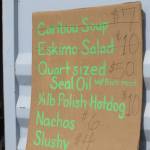 Caribou Soup $7
Eskimo Salad $10
Quart sized
Seal Oil
1/4lb Polish Hotdog
Nachos
Slushy 4